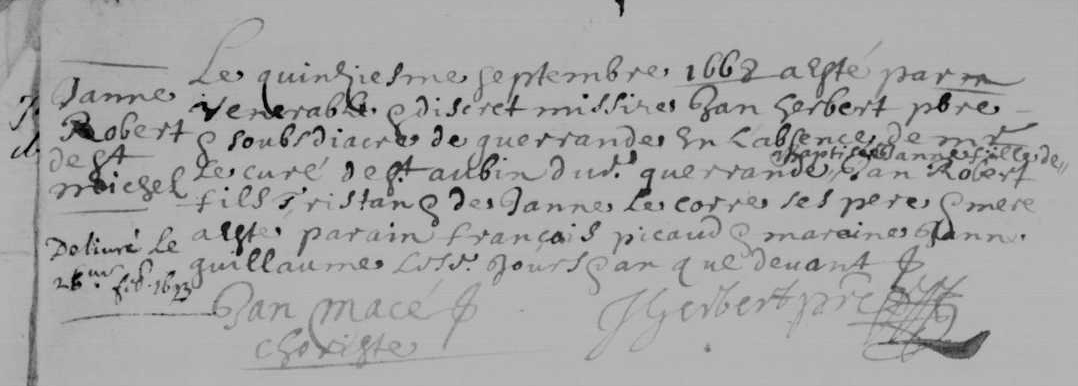 Janne
Robert
de St
Michel
Delivré le
28me feb. 1693
Le quinziesme septembre 1662 a esté par
venerable & discret missire Jan herbert pbre
& soubsdiacre de guerrande En Labsence de mr
Le curé de St aubin dud. guerrande baptisée Janne fille de Jan Robert
fils Tristan & de Janne Le corre ses pere & mere
a esté parain françois picaud & maraine Janne
guillaume Lesd. Jours & an que devant
Jan macé
choriste
J Herbert pbre